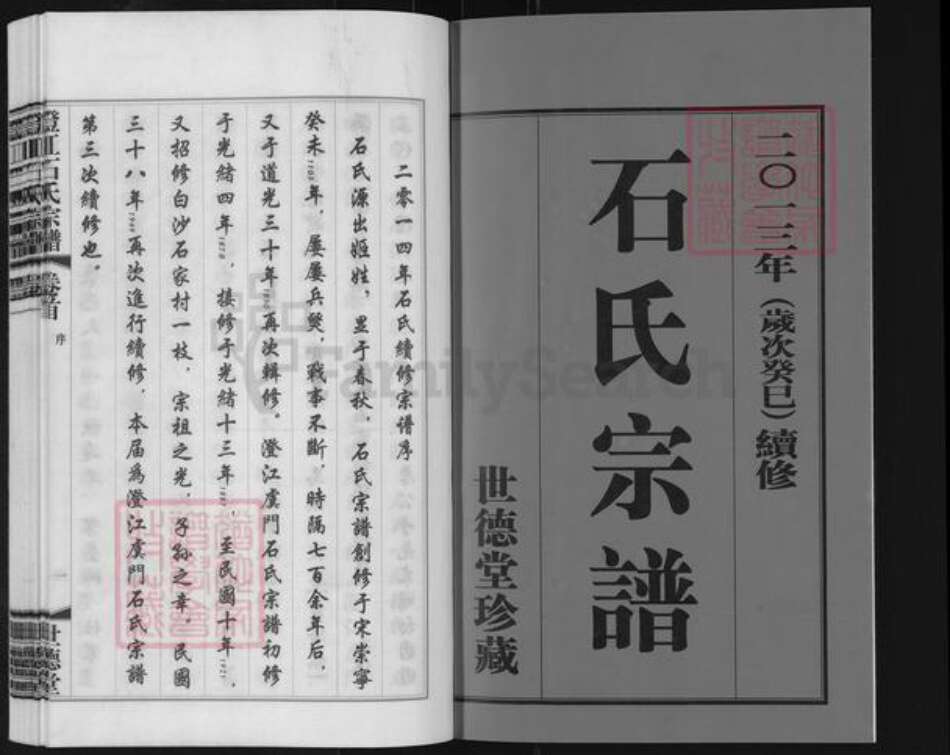 二〇一三年（歲次癸巳）續修
石氏宗譜
世德堂珍藏
二零一四年石氏續修宗谱序
石氏源出姬姓，显于春秋，石氏宗譜創修于宋崇寧
癸未年，屡屡兵燹，戰事不斷，時隔七百余年后，
又于道光三十年再次輯修。澄江虞門石氏宗譜初修
于光緒四年1878，接修于光緒十三年1887，至民國十年1921，
又招修白沙石家村一枝，宗祖之光，子孙之幸。民國
三十八年1949再次進行續修，本届爲澄江虞門石氏宗譜
第三次續修也。
澄江石氏宗譜
卷首
序
一
世德堂
FamilySearch